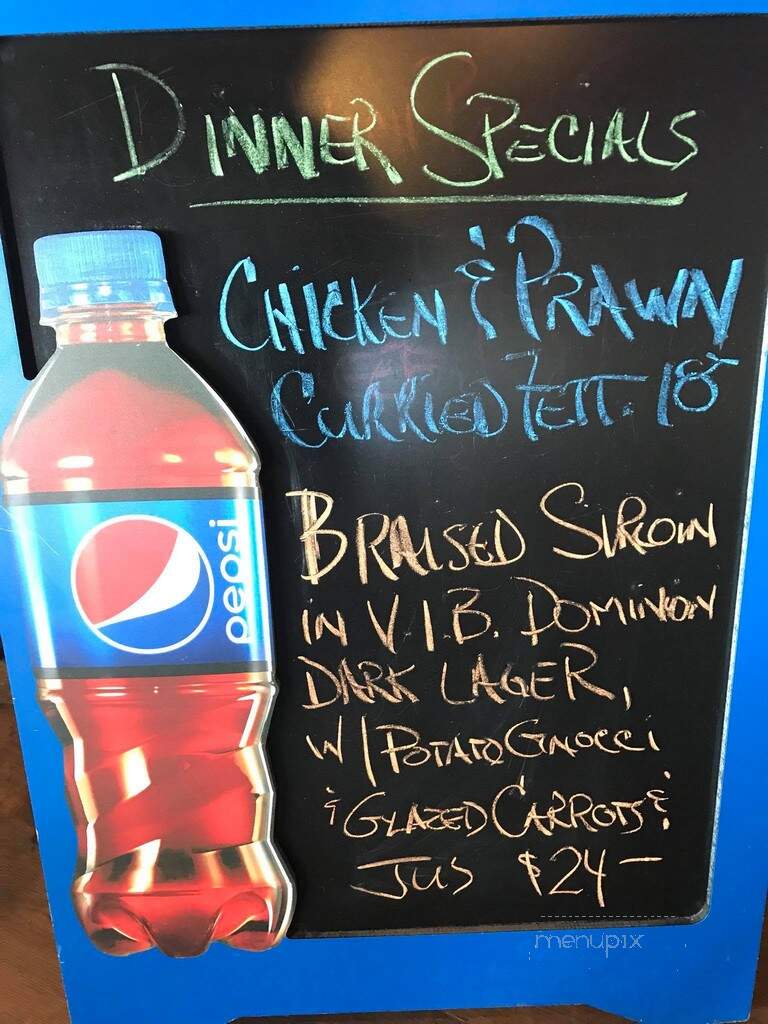 DINNER SPECIALS
CHICKEN & PRAWN
CURRIED FETT. 18-
BRAISED SIRLOIN
IN V.I.B. DOMINION
DARK LAGER,
W/ POTATO GNOCCI
& GLAZED CARROTS &
JUS $24-
pepsi
menupix